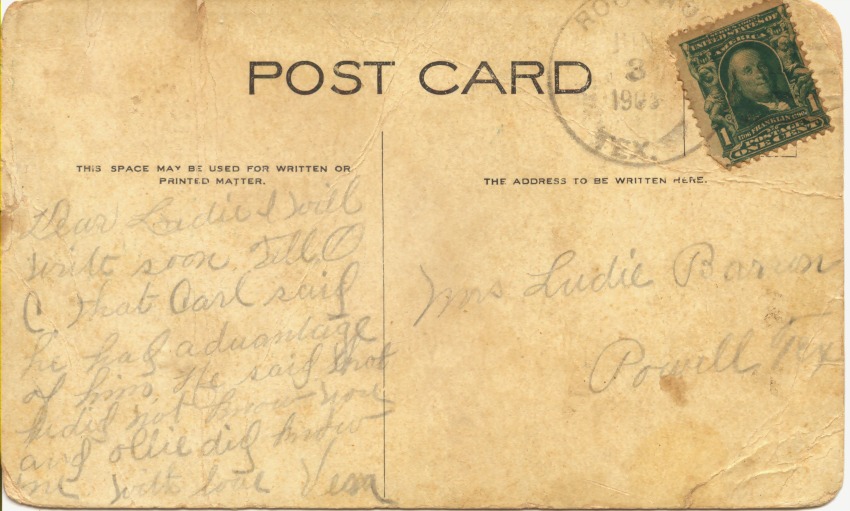 POST CARD
THIS SPACE MAY BE USED FOR WRITTEN OR
PRINTED MATTER.
THE ADDRESS TO BE WRITTEN HERE.
JUN
3
TEX.
UNITED STATES OF
AMERICA
1 FRANKLIN 1
POSTAGE
ONE CENT
Dear Ludie I will
write soon. Tell O
C. that Carl said
he had advantage
of him. He said that
he did not know you
and Ollie did know
me with love Vera
Mrs Ludie Barron
Powell, Tex